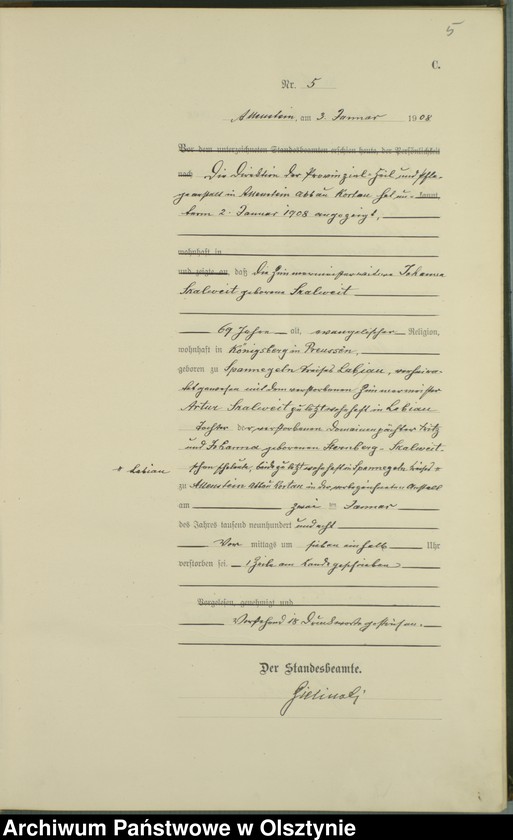 5
C.
Nr. 5
Allenstein, am 3. Januar 1908
Vor dem unterzeichneten Standesbeamten erschien heute, der Persönlichkeit
nach Die Direktion der Provinzial-Heil und Pfle-
geanstalt in Allenstein Abbau Kortau hat kannt,
2. Januar 1908 angezeigt,
wohnhaft in
und zeigte an, daß die Zimmermeisterwitwe Johanna
Skalweit geborene Skalweit
69 Jahre alt, evangelischer Religion,
wohnhaft in Königsberg in Preussen,
geboren zu Spannegeln Kreises Labiau, verheira-
tet gewesen mit dem verstorbenen Zimmermeister
Artur Skalweit zuletzt wohnhaft in Labiau
Tochter der verstorbenen Domainenpächter Fritz
und Johanna geborenen Sternberg-Skalweit-
schen Eheleute, beide zuletzt wohnhaft in Spannegeln Kreises +
+ Labiau
zu Allenstein Abbau Kortau in der vorbezeichneten Anstalt
am zwei ten Januar
des Jahres tausend neunhundert und acht
Vor mittags um sieben einhalb Uhr
verstorben sei. 1 Zeile am Rande geschrieben
Vorgelesen, genehmigt und
Vorstehend 18 Druckworte gestrichen.
Der Standesbeamte.
Archiwum Państwowe w Olsztynie